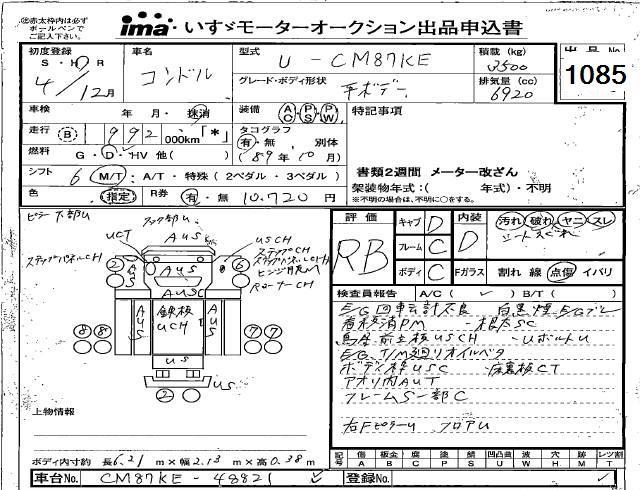 ㊟赤太枠内は必ず
ボールペンで
ご記入下さい。
ima いすゞモーターオークション出品申込書
初度登録 車名 型式 U-CM87KE 積載(kg) 3500 出品No.
S・H・R 4/12月 コンドル グレード・ボディ形状 平ボデー 排気量(cc) 6920 1085
車検 年・月・抹消 装備 AC PS PW 特記事項
走行 B 992 000km「*」 タコグラフ 有・無 別体 (89年10月)
燃料 G・D・HV 他( )
シフト 6 M/T:A/T・特殊(2ペダル・3ペダル) 書類2週間 メーター改ざん
架装物年式:( 年式)・不明
色 指定 R券 有・無 10,720円 ※不明の場合は、不明に○をする。
ピラー下部U
UCT AUS USCH
ステップパネルCH ステップCH
2 AUS 6
ローナーCH
AUSC
AUS 鉄板 UCH AUS
8 8 7 7
US
2 US
上物情報
ボディ内寸約 長6.21m×幅2.13m×高0.38m
評価 RB キャブ D 内装 D 汚れ 破れ ヤニ スレ
フレーム C
ボディ C Fガラス 割れ 線 点傷 イバリ
検査員報告 A/C( ✓ ) B/T( )
E/G回転計不良 白黒煙 E/Gブレ
看板消PM -根太SC
鳥居前立板USCH -UボルトU
E/G,T/M廻りオイルベタ
ボディ枠USC -床裏板CT
アオリ内AUT
フレームS一部C
右FピラーU フロアU
記号 傷A 板金B 腐C 塗P 錆S 凹凸曲U 波W 穴H 跡M レンズ割T
車台No. CM87KE-48821 登録No.